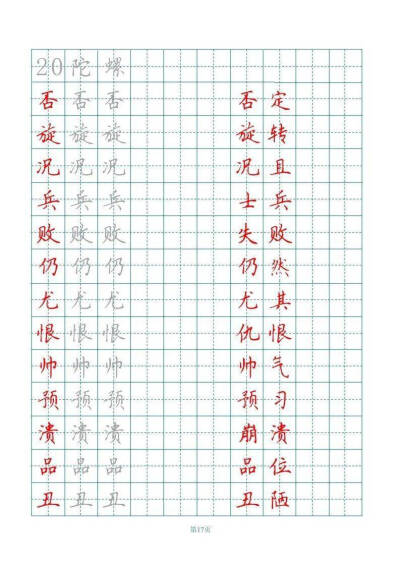 20 陀 螺
否 否 否 否 定
旋 旋 旋 旋 转
况 况 况 况 且
兵 兵 兵 士 兵
败 败 败 失 败
仍 仍 仍 仍 然
尤 尤 尤 尤 其
恨 恨 恨 仇 恨
帅 帅 帅 帅 气
预 预 预 预 习
溃 溃 溃 崩 溃
品 品 品 品 位
丑 丑 丑 丑 陋
第17页